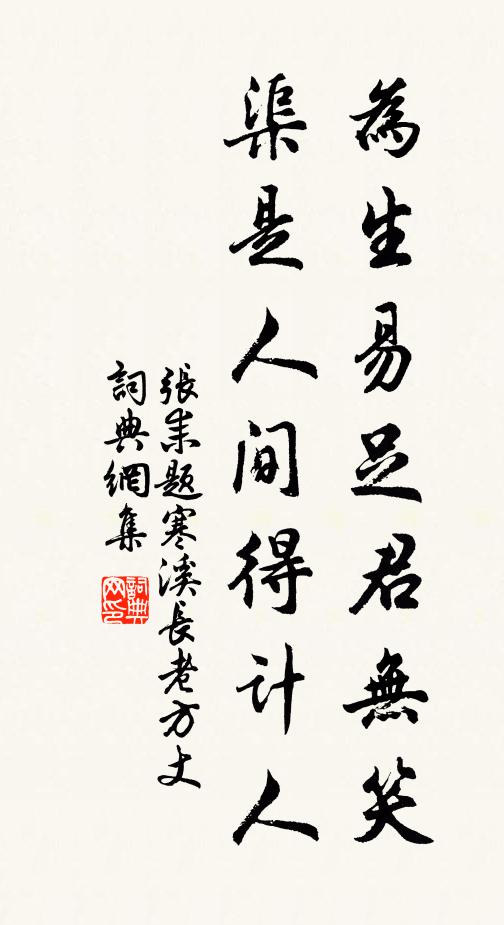 為生易足君無笑
渠是人間得計人
張耒題寒溪長老方丈
詞典網集
詞典
网印